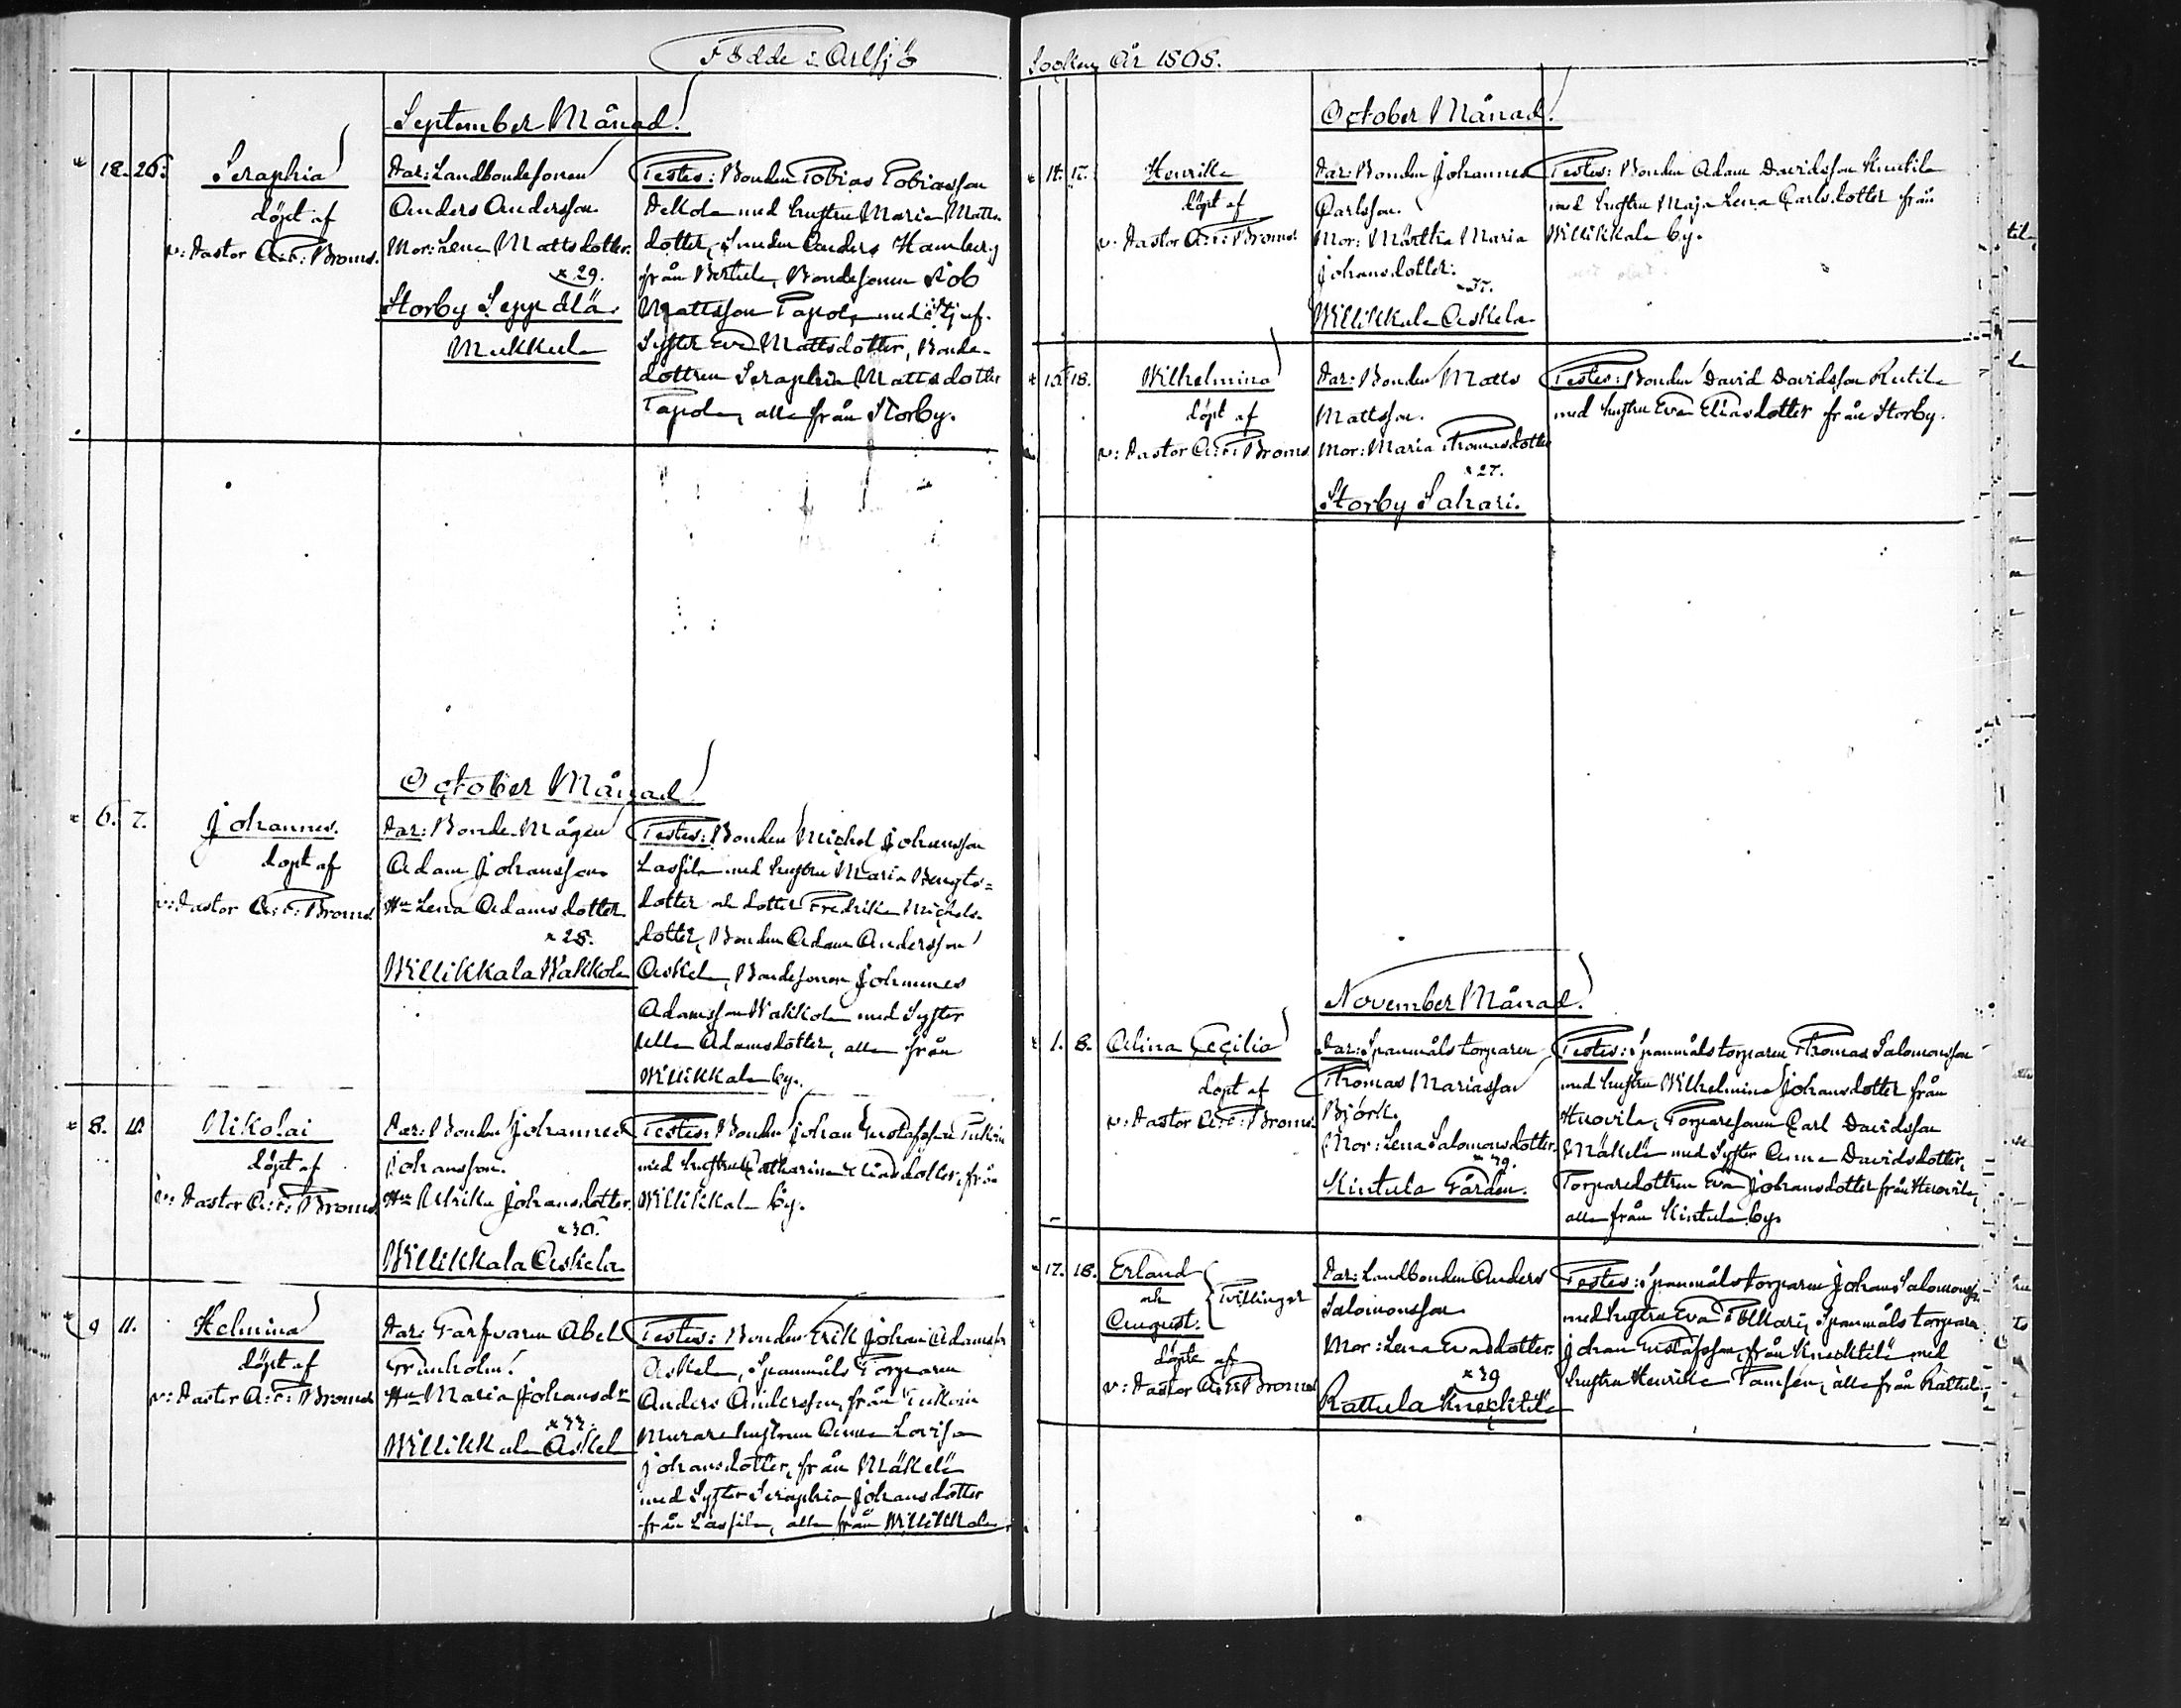 Födde i Artsjö
September Månad.
18. 26.
Seraphia
döpt af
v: Pastor A: F: Broms.
Par: Landbondesonen
Anders Andersson
Mor: Lena Mattsdotter.
x 29.
Storby Seppälä
Mukkula
Testes: Bonden Tobias Tobiasson
med hustru Maria Matts-
dotter, Smeden Anders Hamberg
från Bertula, Bondesonen Job
Mattsson Tapola med
Syster Eva Mattsdotter, Bonde-
dottren Seraphia Mattsdotter
Tapola, alla från Storby.
October Månad
6. 7.
Johannes.
döpt af
v: Pastor A: F: Broms
Par: Bonde Mågen
Adam Johansson
Hu Lena Adamsdotter
x 28.
Willikkala Wakkola
Testes: Bonden Michel Johansson
Lassila med hustru Maria Bengts=
dotter och dotter Fredrika Michels-
dotter, Bonden Adam Andersson
Askela, Bondesonen Johannes
Adamsson Wakkola med Syster
Ulla Adamsdotter, alla från
Willikkala by.
8.
Nikolai
döpt af
v: Pastor A: F: Broms
Par: Bonden Johannes
Johansson.
Hu Ulrika Johansdotter.
x 30.
Willikkala Askela
Testes: Bonden Johan Gustafsson
med hustru Catharina Eliasdotter, från
Willikkala by.
9 11.
Helmina
döpt af
v: Pastor A: F: Broms
Par: Garfvaren Abel
Granholm.
Hu Maria Johansdr
x 33.
Willikkala Askela
Testes: Bonden Erik Johan Adamsson
Askela, Spanmåls Torparen
Anders Andersson, från
Murarehustrun Anna Lovisa
Johansdotter, från Mäkelä
med Syster Seraphia Johansdotter
från Lassila, alla från Willikkala
Socken År 1868.
October Månad.
14. 17.
Henrika
döpt af
v: Pastor A: F: Broms.
Par: Bonden Johannes
Carlsson.
Mor: Märtha Maria
Johansdotter.
Willikkala Askela
Testes: Bonden Adam Davidsson
med hustru Maja Lena Carlsdotter från
Willikkala by.
15. 18.
Wilhelmina
döpt af
v: Pastor A: F: Broms
Par: Bonden Matts
Mattsson.
Mor: Maria Thomasdotter
x 27.
Storby Sahari.
Testes: Bonden David Davidsson
med hustru Eva Eliasdotter från Storby.
November Månad.
1. 8.
Alina Cecilia
döpt af
v: Pastor A: F: Broms
Par: Spanmålstorparen
Thomas Mariasson
Björk.
Mor: Lena Salomonsdotter.
x 39.
Kintula Gården.
Testes: Spanmålstorparen Thomas Salomonsson
med hustru Wilhelmina Johansdotter från
Huovila, Torparesonen Carl Davidsson
Mäkelä med Syster Anna Davidsdotter,
Torparedottren Eva Johansdotter från Huovila,
alla från Kintula by.
17. 18.
Erland
och
August.
Tvillingar
döpte af
v: Pastor A: F: Broms
Par: Landbonden Anders
Salomonsson
Mor: Lena Evasdotter.
x 39
Rattula Knecktilä
Testes: Spanmålstorparen Johan Salomonsson
med hustru Eva Spanmåls torparen
Johan Gustafsson, från Knecktilä med
hustru Henrika alla från Rattula